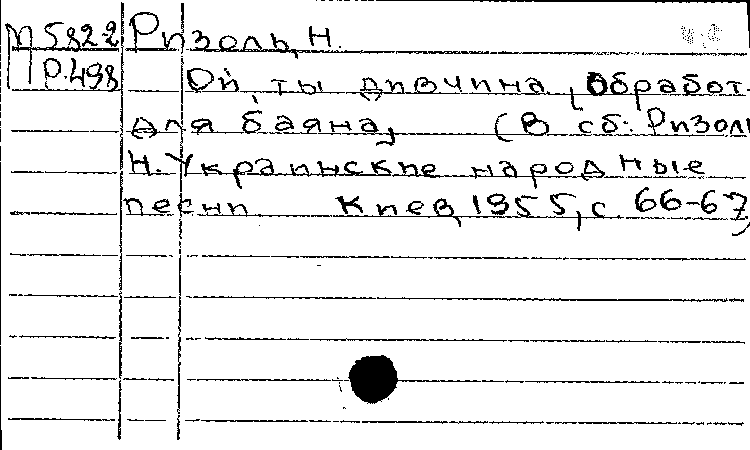 М 5822 Ризоль, Н.
Р.498 Ой, ты дивчина, [Обработ.
для баяна] (В сб: Ризоль
Н. Украинские народные
песни. Киев, 1955, с. 66-67)